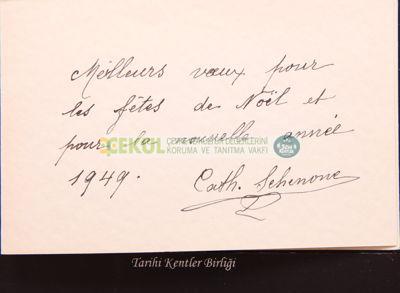 Meilleurs vœux pour
les fêtes de Noël et
pour la nouvelle année
1949. Cath. Schenone
ÇEKÜL
ÇEVRE VE KÜLTÜR DEĞERLERİNİ
KORUMA VE TANITMA VAKFI
Tarihi Kentler Birliği